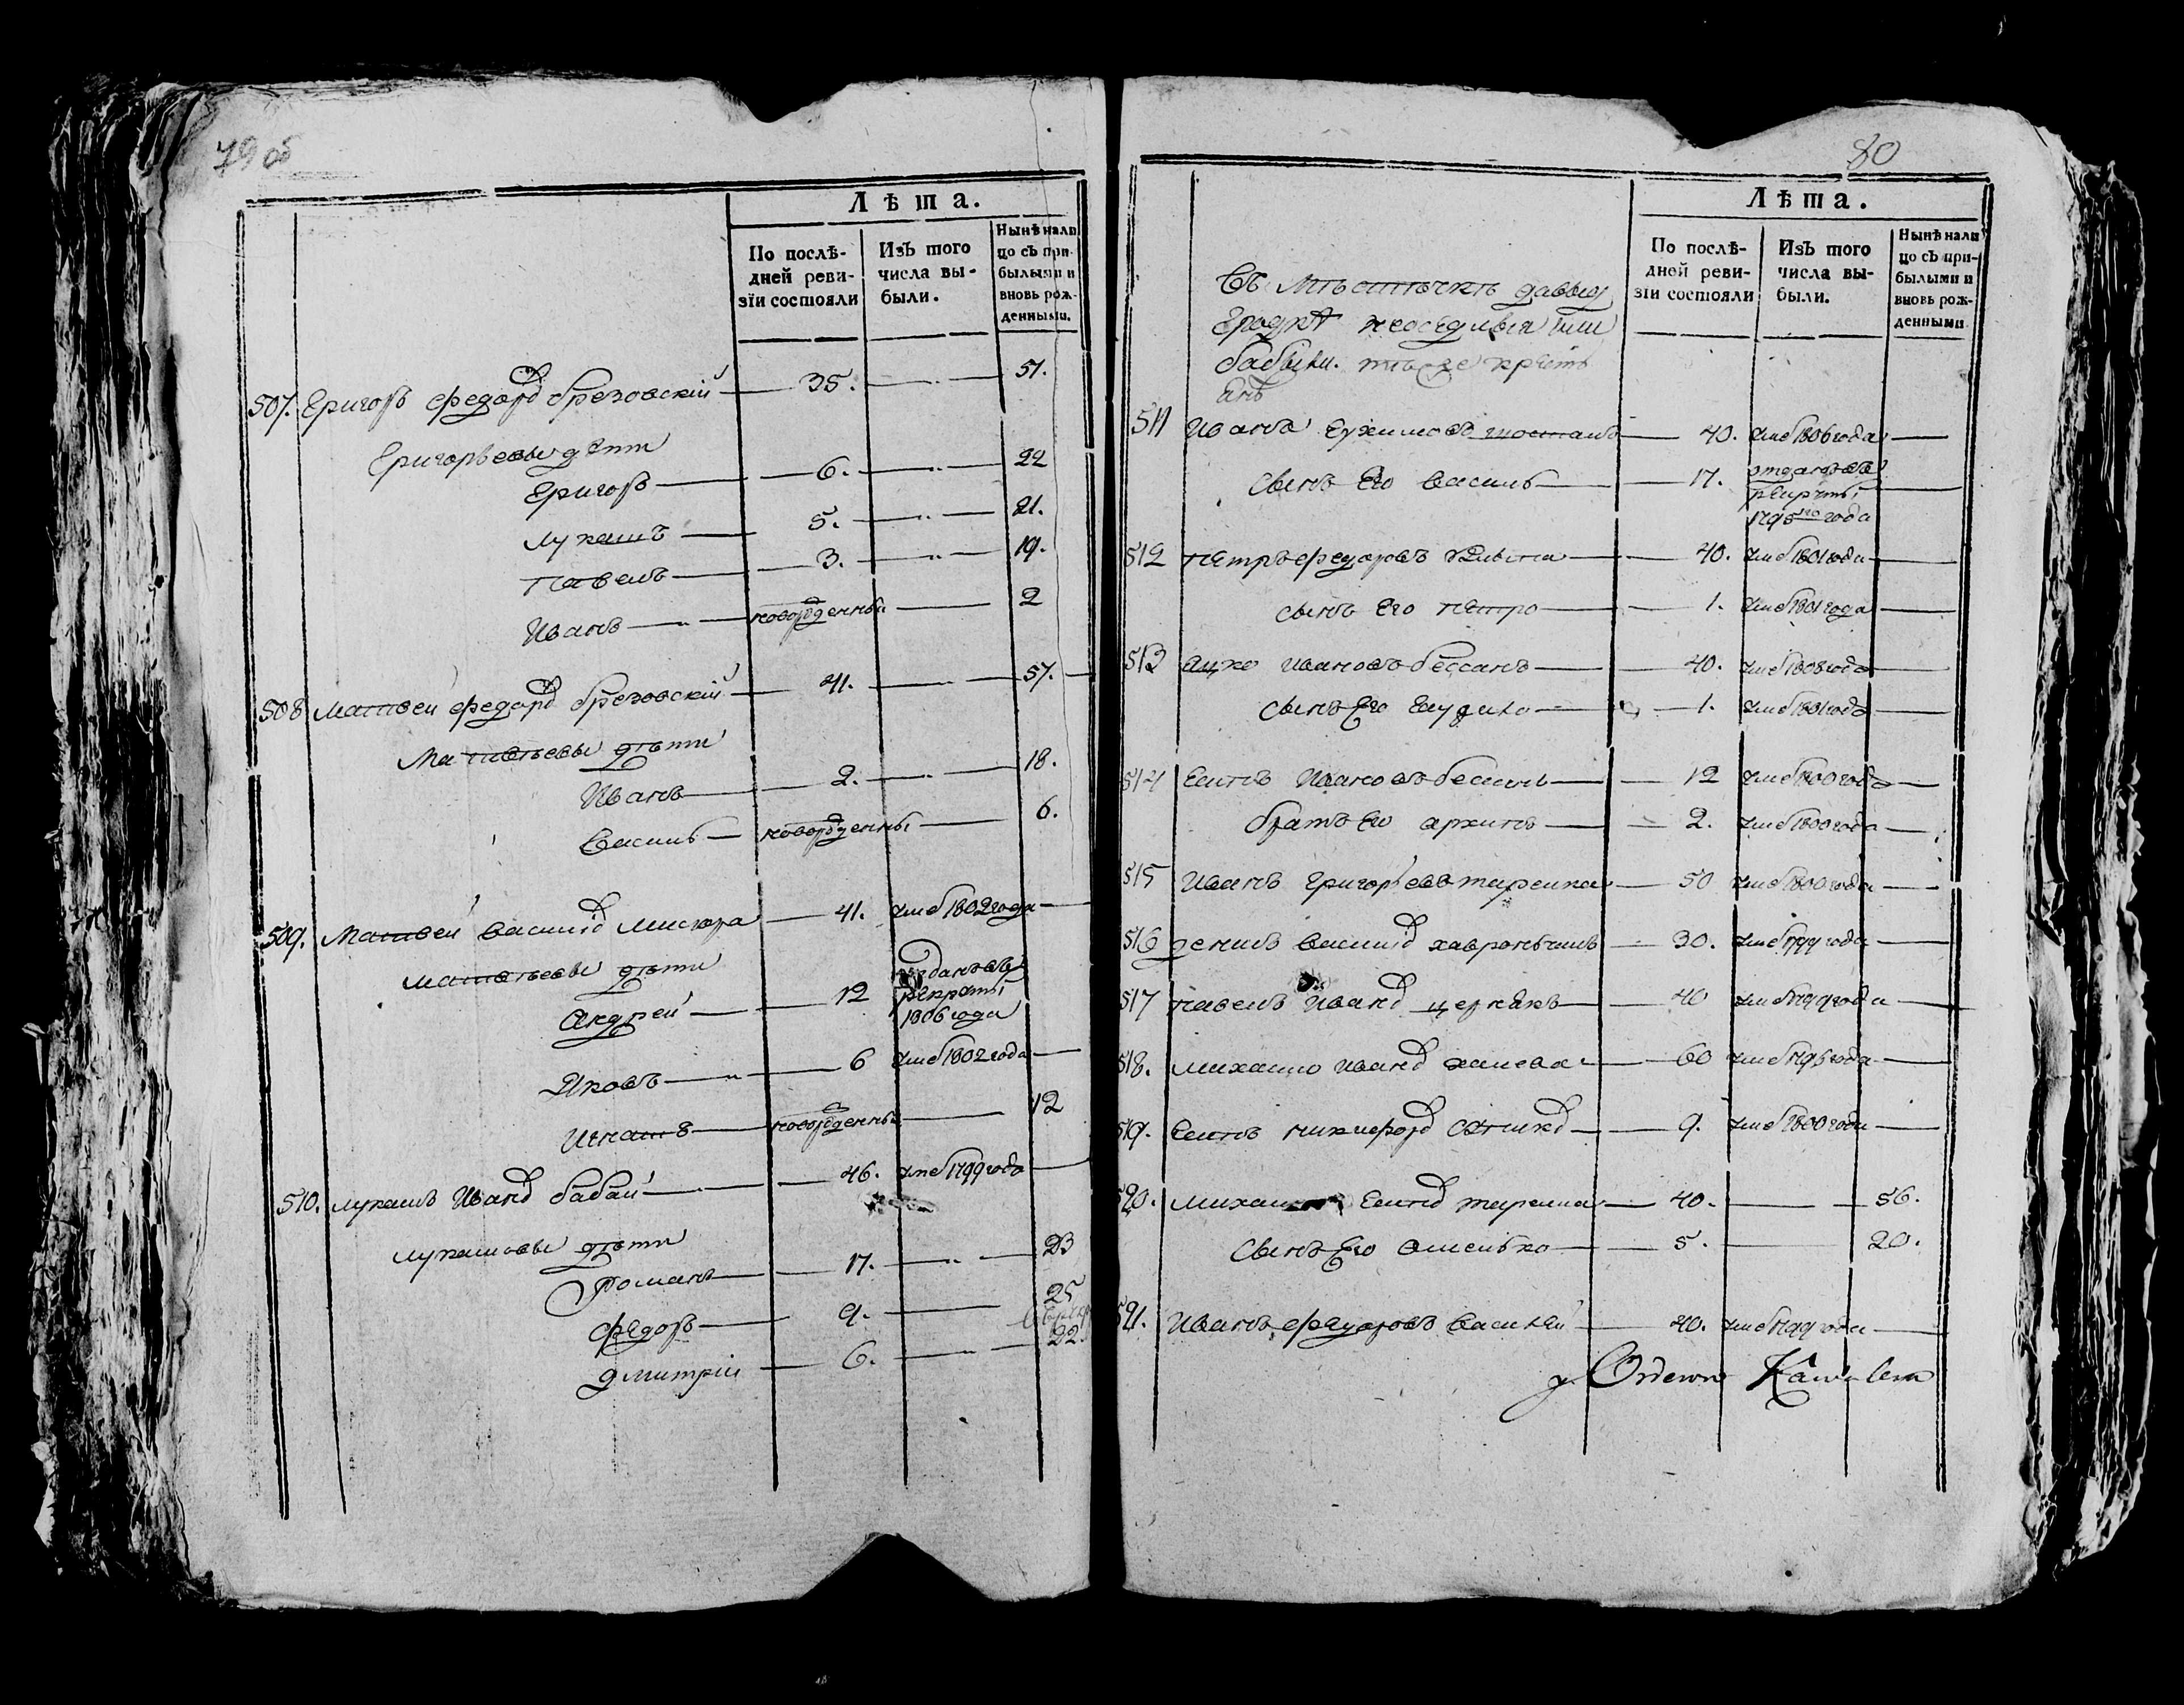 79 об
Лѣта.
По послѣ-
дней реви-
зіи состояли
Изъ того
числа вы-
были.
Нынѣ нали
цо съ при-
былыми и
вновь рож-
денными.
507. Григорь Федоров Брезовскій 35. 51.
Григорьевы дѣти
Григорь 6. 22
Лукашъ 5. 21.
Павелъ 3. 19.
Иванъ новорожденный 2
508 Матвей Федоров Брезовскій 41. 57.
Матвѣевы дѣти
Иванъ 2. 18.
Василь новорожденны 6.
509. Матвей Василів Мисюра 41. умеб 1802 года
Матвѣевы дѣти
Андрей 12 отданъ въ
рекруты
1806 года
Яковъ 6 умеб 1802 года
Игнатъ новорожденны 12
510. Лукашъ Иванов Бабай 46. умеб 1799 года
Лукашовы дѣти
Романъ 17. 23
Федоръ 9. 25
Дмитрій 6. 22.
80
Лѣта.
По послѣ-
дней реви-
зіи состояли
Изъ того
числа вы-
были.
Нынѣ нали
цо съ при-
былыми и
вновь рож-
денными
Въ Мѣстѣчкѣ Давыд
Градкѣ неоседлыя или
бабыли.
511 Иванъ 40. умеб 1806 года
сынъ Его Василь 17. отданъ въ
рекруты
1795го года
512 Петръ Федоровъ 40. умеб 1801 года
сынъ Его Петро 1. умеб 1801 года
513 Яцко Ивановъ Бессанъ 40. умеб 1808 года
сынъ Его 1. умеб 1801 года
514 Есипъ Ивановъ 12 умеб 1800 года
братъ Его Архипъ 2. умеб 1800 года
515 Иванъ Григорьевъ 50 умеб 1800 года
516 Денисъ Василів 30. умеб 1799 года
517 Павелъ Иванов 40 умеб 1799 года
518. Михайло Иванов 60 умеб 1796 года
519. Есипъ Никифоров 9. умеб 1800 года
520. Есипов 40. 56.
Сынъ Его Омелько 5. 20.
521. Иванъ Федоровъ 40. умеб 1799 года